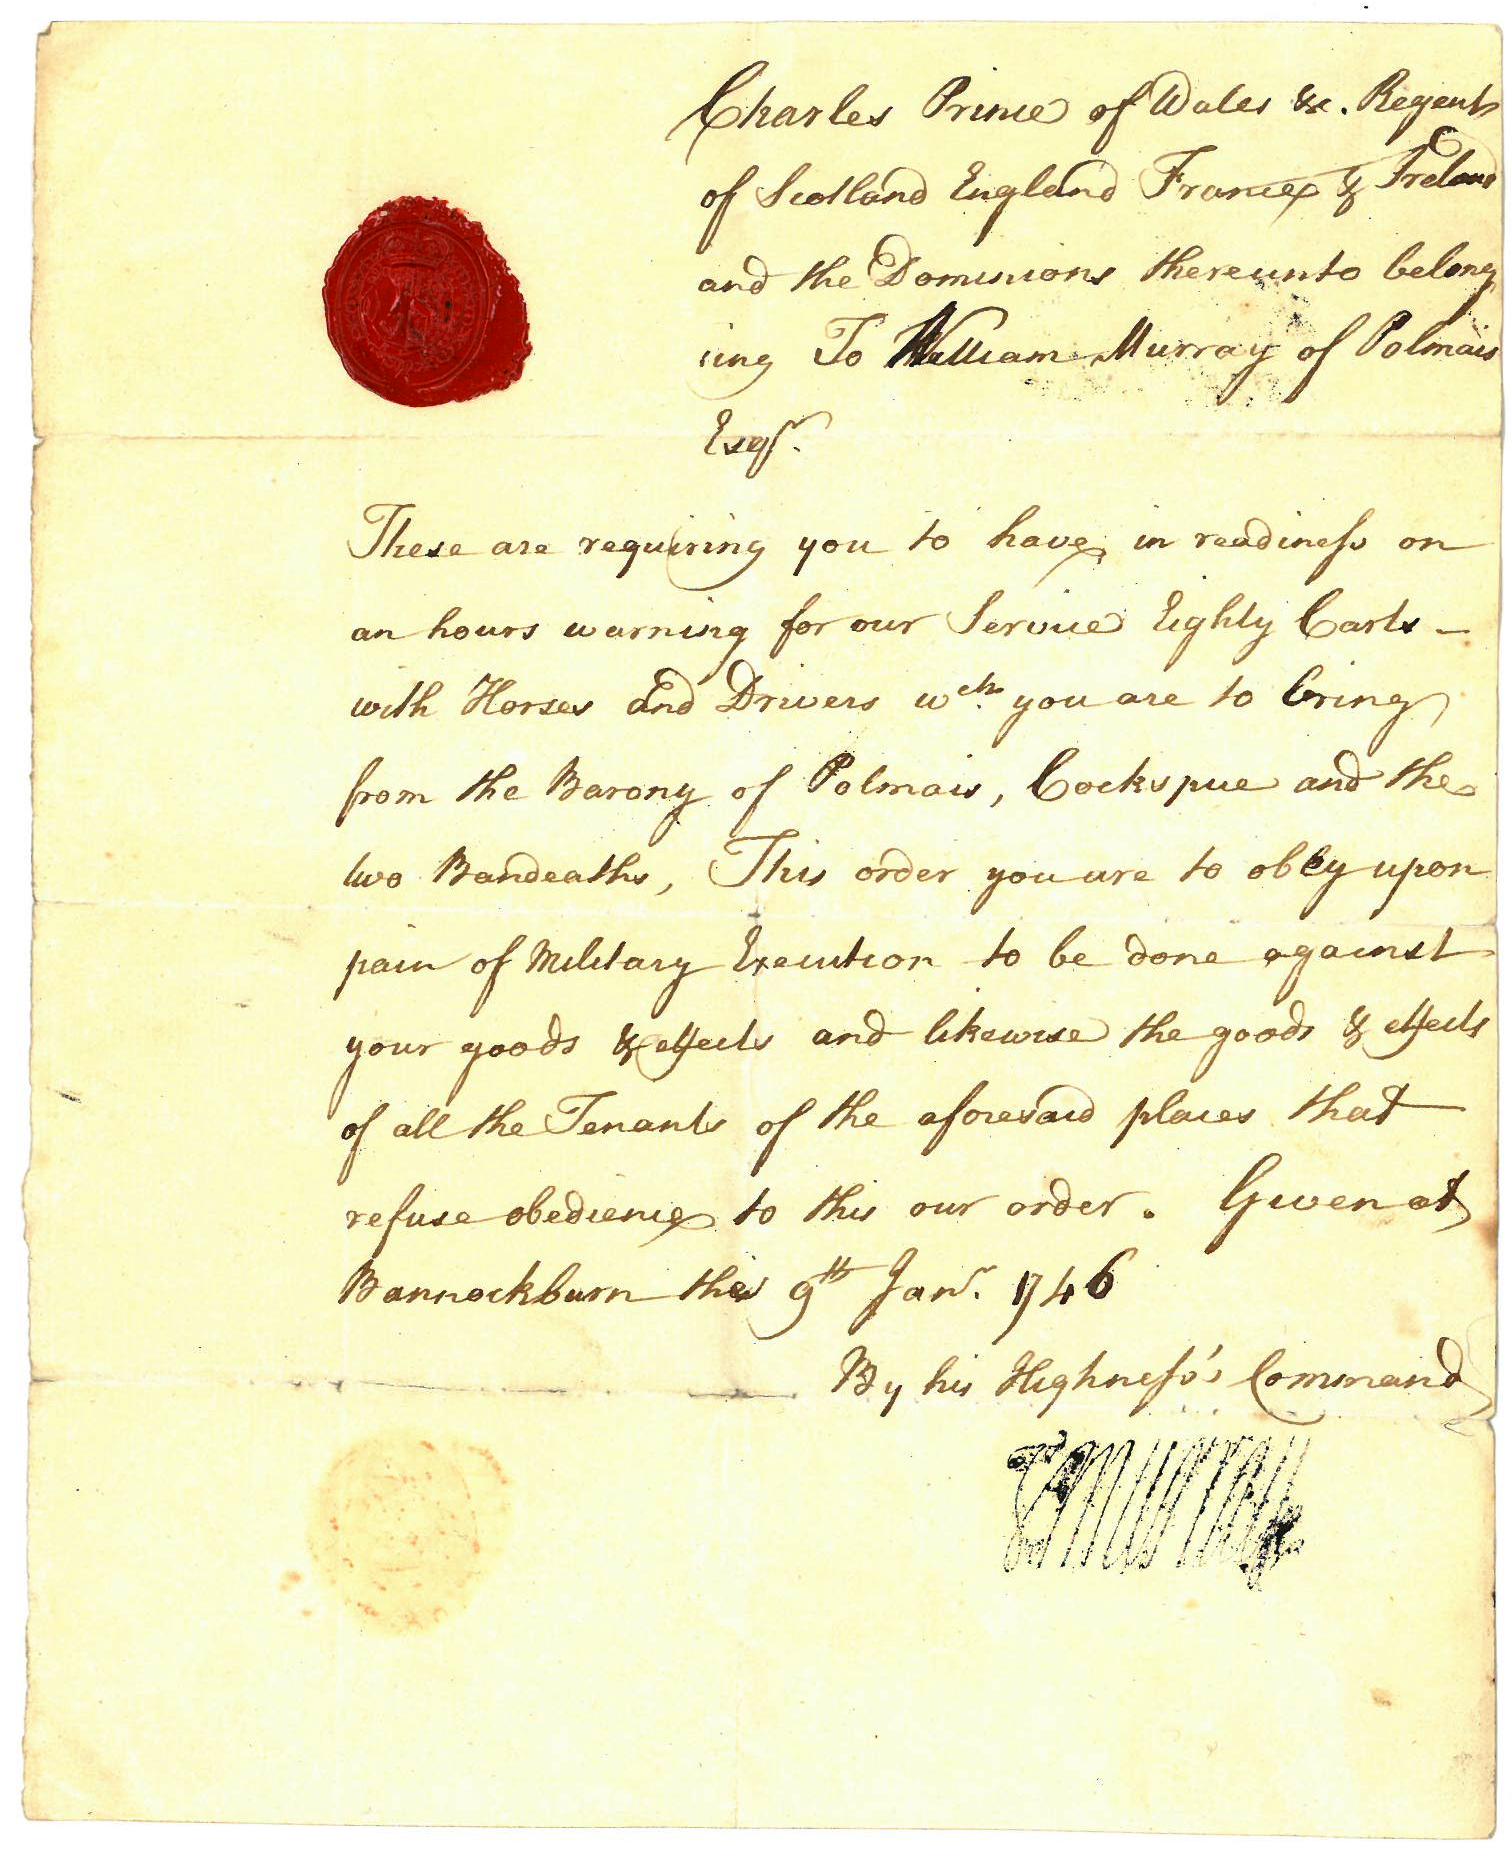 Charles Prince of Wales &c. Regent
of Scotland England France & Ireland
and the Dominions thereunto belong
ing To William Murray of Polmais
Esqr.
These are requiring you to have in readiness on
an hours warning for our Service Eighty Carts –
with Horses and Drivers wch. you are to bring
from the Barony of Polmais, Cockspue and the
two Bandeaths, This order you are to obey upon
pain of Military Execution to be done against
your goods & effects and likewise the goods & effects
of all the Tenants of the aforesaid places that
refuse obedience to this our order. Given at
Bannockburn the 9th Janr. 1746
By his Highness's Command
Jo Murray